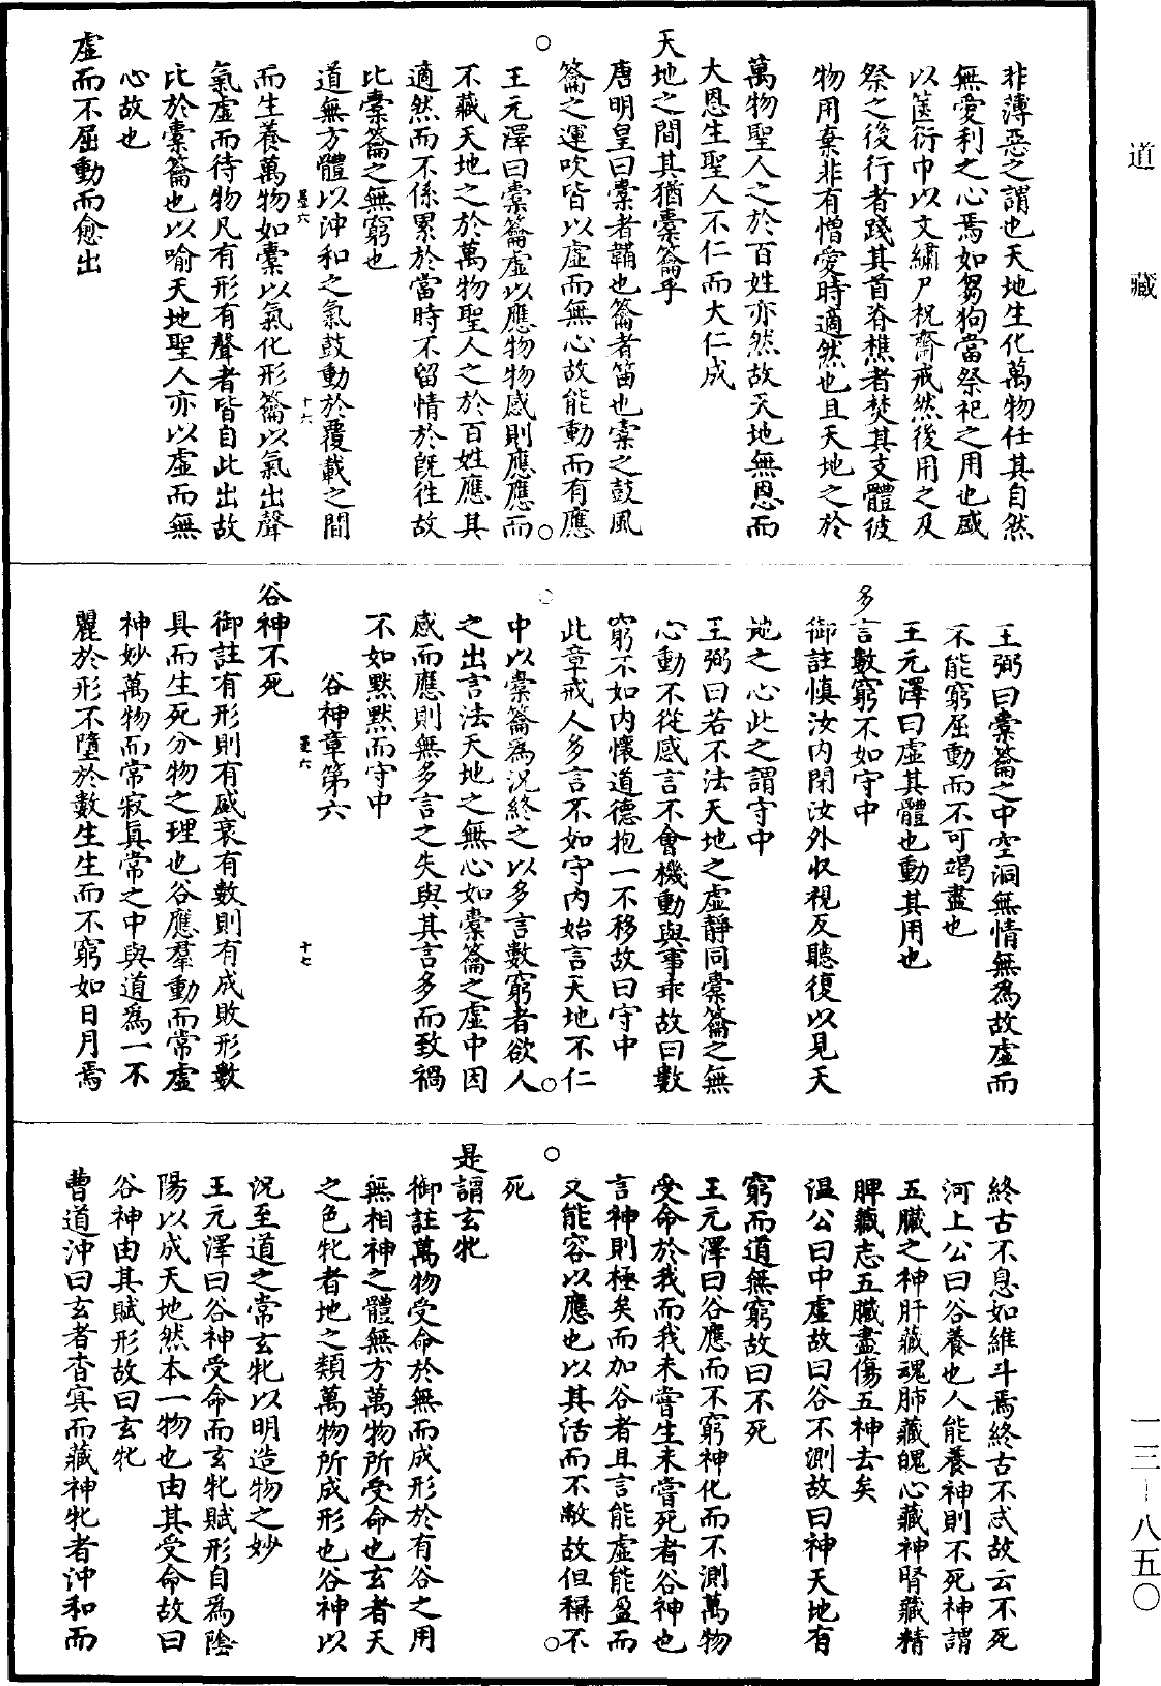 道藏
非薄惡之謂也天地生化萬物任其自然
無愛利之心焉如芻狗當祭祀之用也盛
以篋衍巾以文繡尸祝齋戒然後用之及
祭之後行者踐其首脊樵者焚其支體彼
物用棄非有憎愛時適然也且天地之於
萬物聖人之於百姓亦然故天地無恩而
大恩生聖人不仁而大仁成
天地之間其猶橐籥乎
唐明皇曰橐者韛也籥者笛也橐之鼓風
籥之運吹皆以虛而無心故能動而有應
王元澤曰橐籥虛以應物物感則應應而
不藏天地之於萬物聖人之於百姓應其
適然而不係累於當時不留情於旣往故
比橐籥之無窮也
道無方體以沖和之氣鼓動於覆載之間
墨六 十六
而生養萬物如橐以氣化形籥以氣出聲
氣虛而待物凡有形有聲者皆自此出故
比於橐籥也以喻天地聖人亦以虛而無
心故也
虛而不屈動而愈出
王弼曰橐籥之中空洞無情無爲故虛而
不能窮屈動而不可竭盡也
王元澤曰虛其體也動其用也
多言數窮不如守中
御註慎汝內閉汝外收視反聽復以見天
地之心此之謂守中
王弼曰若不法天地之虛靜同橐籥之無
心動不從感言不會機動與事乖故曰數
窮不如內懷道德抱一不移故曰守中
此章戒人多言不如守內始言天地不仁
中以橐籥爲況終之以多言數窮者欲人
之出言法天地之無心如橐籥之虛中因
感而應則無多言之失與其言多而致禍
不如默默而守中
谷神章第六
墨六 十七
谷神不死
御註有形則有盛衰有數則有成敗形數
具而生死分物之理也谷應羣動而常虛
神妙萬物而常寂眞常之中與道爲一不
麗於形不墮於數生生而不窮如日月焉
終古不息如維斗焉終古不忒故云不死
河上公曰谷養也人能養神則不死神謂
五臟之神肝藏魂肺藏魄心藏神腎藏精
脾藏志五臟盡傷五神去矣
温公曰中虛故曰谷不測故曰神天地有
窮而道無窮故曰不死
王元澤曰谷應而不窮神化而不測萬物
受命於我而我未嘗生未嘗死者谷神也
言神則極矣而加谷者且言能虛能盈而
又能容以應也以其活而不敝故但稱不
死
是謂玄牝
御註萬物受命於無而成形於有谷之用
無相神之體無方萬物所受命也玄者天
之色牝者地之類萬物所成形也谷神以
況至道之常玄牝以明造物之妙
王元澤曰谷神受命而玄牝賦形自爲陰
陽以成天地然本一物也由其受命故曰
谷神由其賦形故曰玄牝
曹道沖曰玄者杳冥而藏神牝者沖和而
一三—八五〇